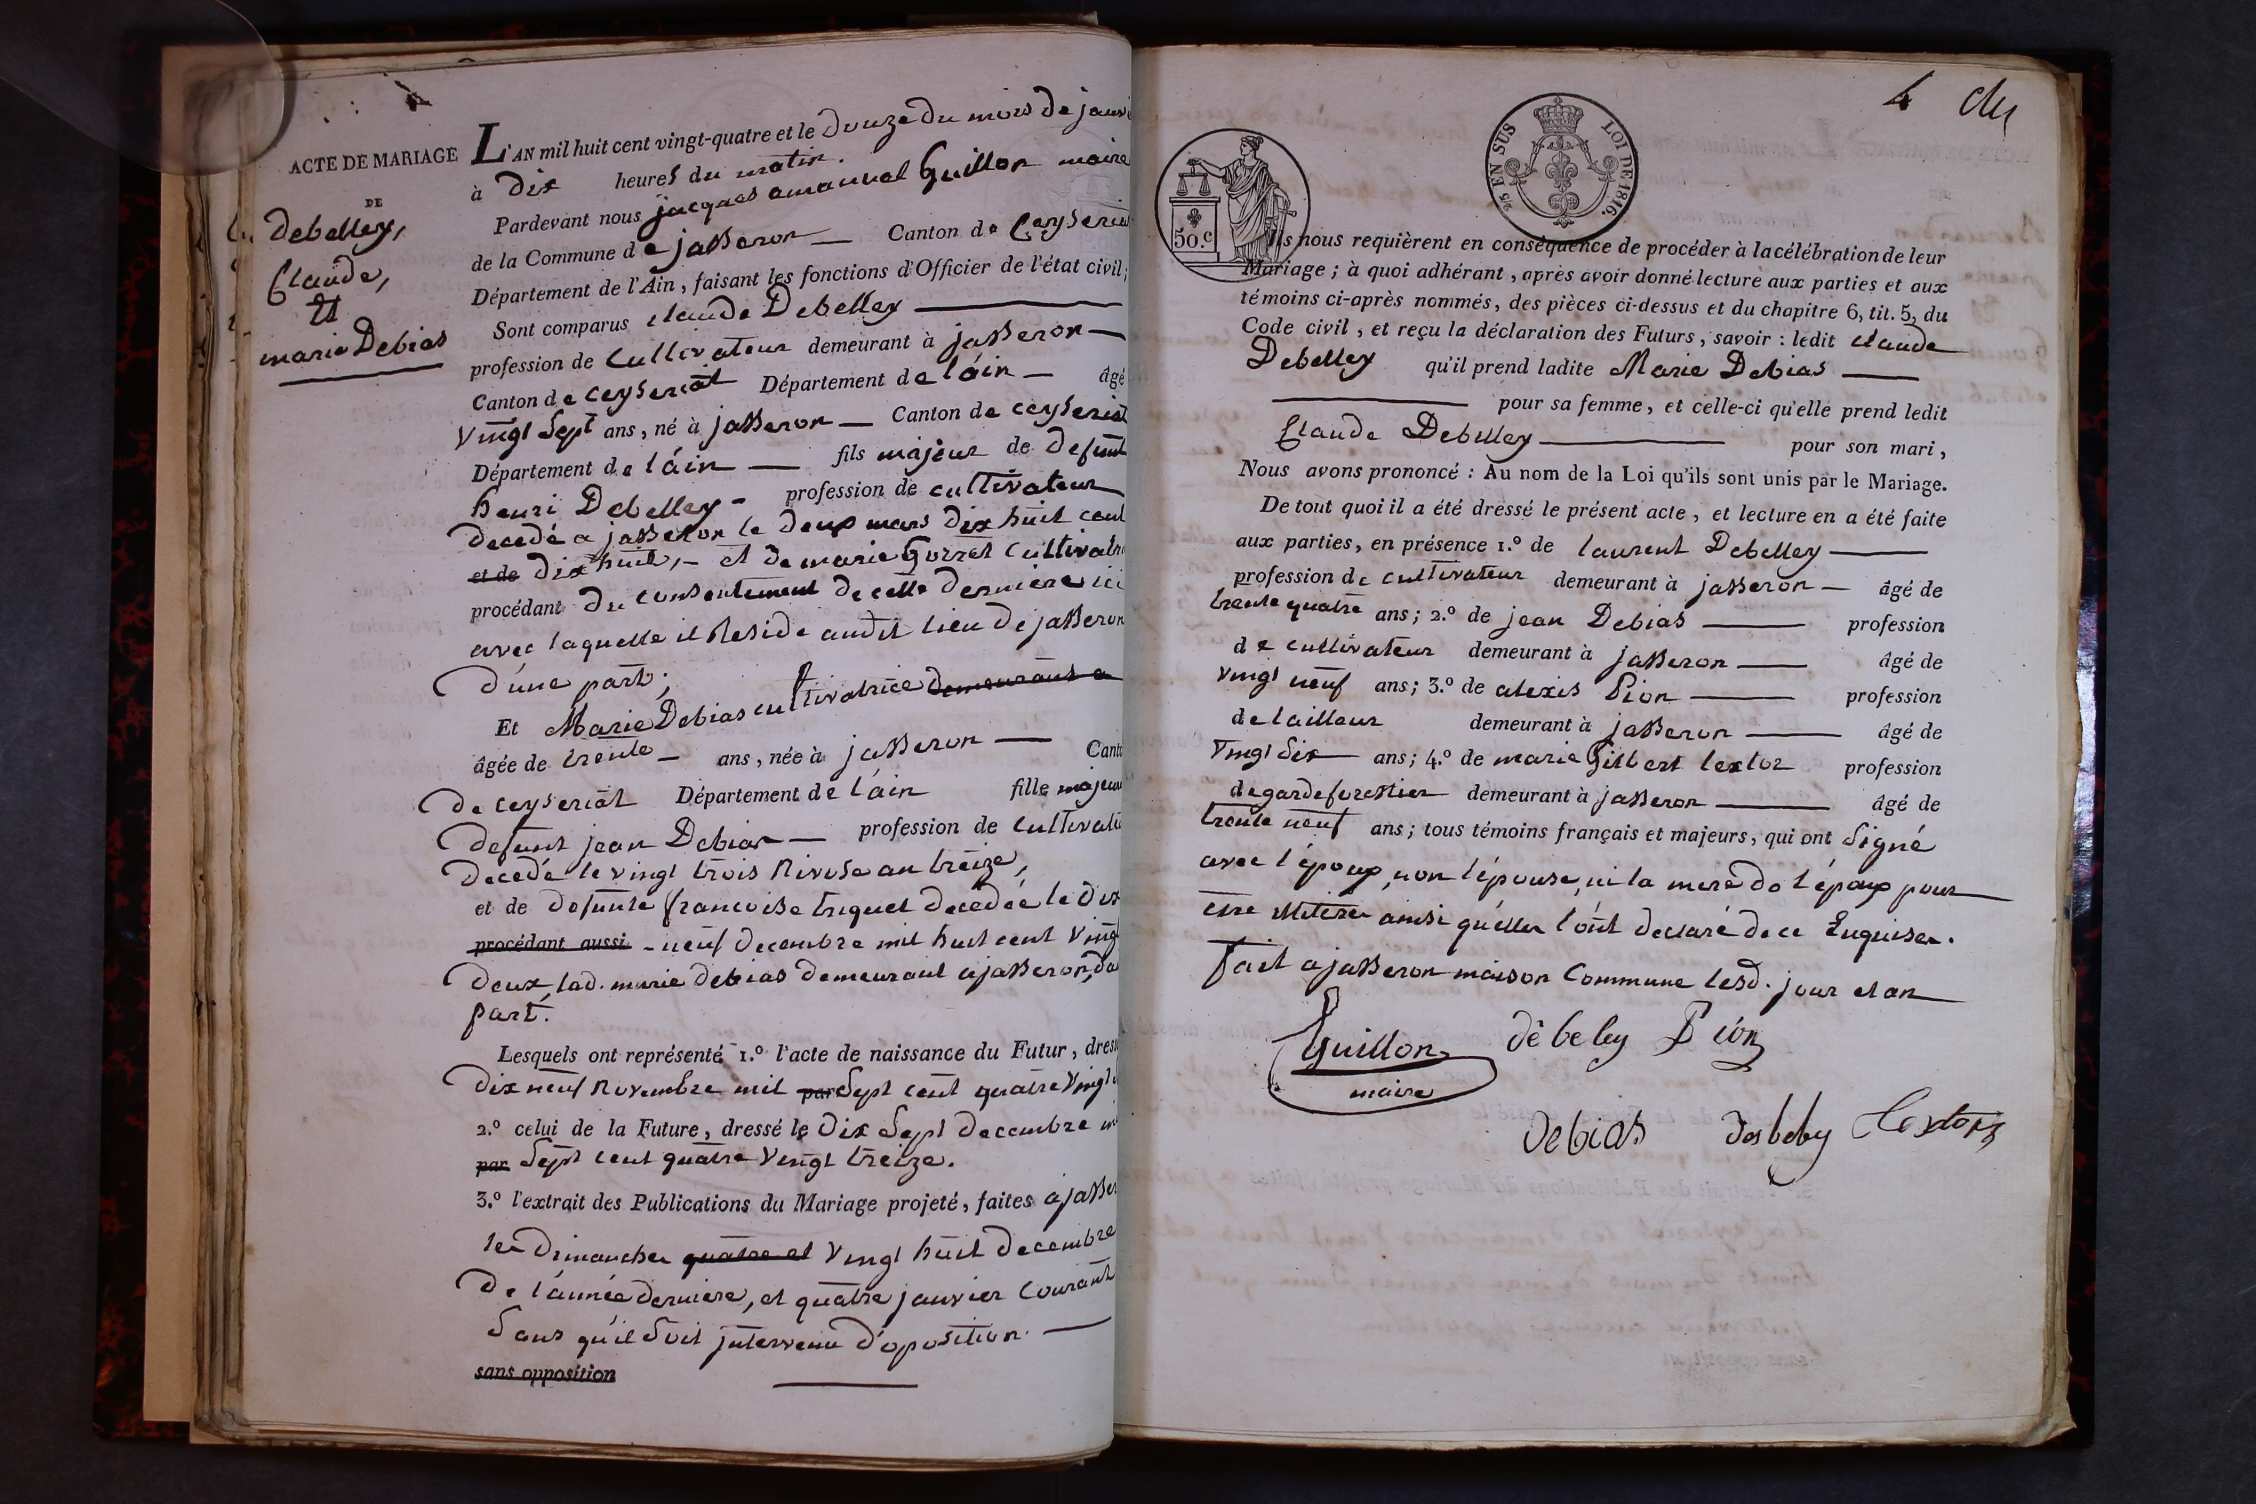 ACTE DE MARIAGE
DE
Debelley,
Claude,
Et
marie Debias
L'AN mil huit cent vingt-quatre et le Douze du mois de janvi
à Dix heures du matin.
Pardevant nous jacques emanuel Guillon maire
de la Commune de jasseron — Canton de Ceyseriat
Département de l'Ain, faisant les fonctions d'Officier de l'état civil;
Sont comparus claude Debelley
profession de Cultivateur demeurant à jasseron —
Canton de ceyseriat Département de l'áin — âgé
vingt Sept ans, né à jasseron — Canton de ceyseriat
Département de l'áin — fils majeur de defunt
henri Debelley - profession de cultivateur
decedé a jasseron le deux mars dix huit cent
et de dix huit, — et de marie Gorret Cultivatri
procédant du consentement de cette derniere ici
avec laquelle il Reside audit lieu de jasseron
d'une part;
Et Marie Debias cultivatrice demeurant a
âgée de trente — ans, née à jasseron — Canto
de ceyseriat Département de l'áin fille majeur
defunt jean Debias — profession de cultivate
decedé le vingt trois Nivose an treize,
et de defunte francoise triquet decedée le dix
procédant aussi - neuf decembre mil huit cent vingt
deux, lad. marie debias demeurant a jasseron, d'a
part.
Lesquels ont représenté 1.º l'acte de naissance du Futur, dress
dix neuf novembre mil par Sept cent quatre vingt
2.º celui de la Future, dressé le Dix Sept decembre mi
par Sept cent quatre vingt treize.
3.º l'extrait des Publications du Mariage projeté, faites a jasser
les dimanches quatre et vingt huit decembre
de l'année derniere, et quatre janvier Courant
Sans qu'il Soit jntervenu d'oposition. —
sans opposition
4
50.c
25 EN SUS LOI DE 1816.
Ils nous requièrent en conséquence de procéder à la célébration de leur
Mariage; à quoi adhérant, après avoir donné lecture aux parties et aux
témoins ci-après nommés, des pièces ci-dessus et du chapitre 6, tit. 5, du
Code civil, et reçu la déclaration des Futurs, savoir: ledit claude
Debelley qu'il prend ladite Marie Debias —
pour sa femme, et celle-ci qu'elle prend ledit
Claude Debelley — pour son mari,
Nous avons prononcé: Au nom de la Loi qu'ils sont unis par le Mariage.
De tout quoi il a été dressé le présent acte, et lecture en a été faite
aux parties, en présence 1.º de laurent Debelley —
profession de cultivateur demeurant à jasseron — âgé de
trente quatre ans; 2.º de jean Debias — profession
de cultivateur demeurant à jasseron — âgé de
vingt neuf ans; 3.º de alexis Pion — profession
de tailleur demeurant à jasseron — âgé de
vingt Six ans; 4.º de marie Gilbert textor profession
de garde forestier demeurant à jasseron — âgé de
trente neuf ans; tous témoins français et majeurs, qui ont Signé
avec l'époux, non l'épouse, ni la mere de l'époux pour
etre illiterés ainsi qu'elles l'ont declaré de ce Enquises.
fait a jasseron maison Commune lesd. jour et an
Guillon debeley Pion
maire
debias desbeley textor